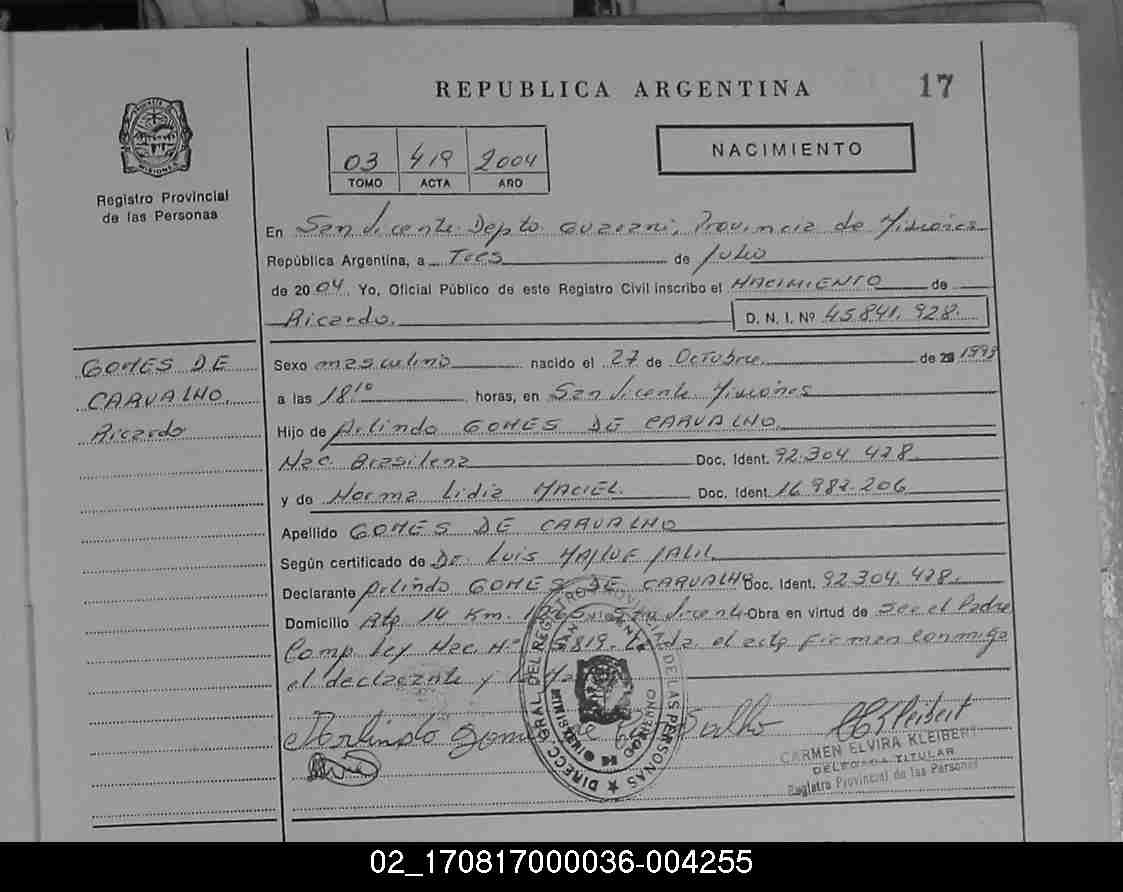 REPUBLICA ARGENTINA
17
MISIONES
Registro Provincial
de las Personas
03 419 2004
TOMO ACTA AÑO
NACIMIENTO
En San Vicente Depto Guarani, Provincia de Misiones
República Argentina, a Tres de Julio
de 2004 Yo, Oficial Público de este Registro Civil inscribo el NACIMIENTO de
Ricardo. D. N. I. Nº 45.841.928.
GOMES DE
CARVALHO.
Ricardo
Sexo masculino nacido el 27 de Octubre de 1998
a las 18 horas, en San Vicente Misiones
Hijo de Arlindo GOMES DE CARVALHO
Nac. Brasilena Doc. Ident. 92.304.428.
y de Norma Lidia MACIEL. Doc. Ident. 16.982.206
Apellido GOMES DE CARVALHO
Según certificado de Dr. Luis
Declarante Arlindo GOMES DE CARVALHO Doc. Ident. 92.304.428.
Domicilio Km. San Vicente Obra en virtud de ser el Padre
Comp. Ley Nac. Nº 819. Leida el acta firman conmigo
el declarante y
Arlindo Gomes de Carvalho
CKleibert
DIRECC. GRAL. DEL REGISTRO PROVINCIAL DE LAS PERSONAS
SAN VICENTE
CARMEN ELVIRA KLEIBERT
DELEGADA TITULAR
Registro Provincial de las Personas
02_170817000036-004255